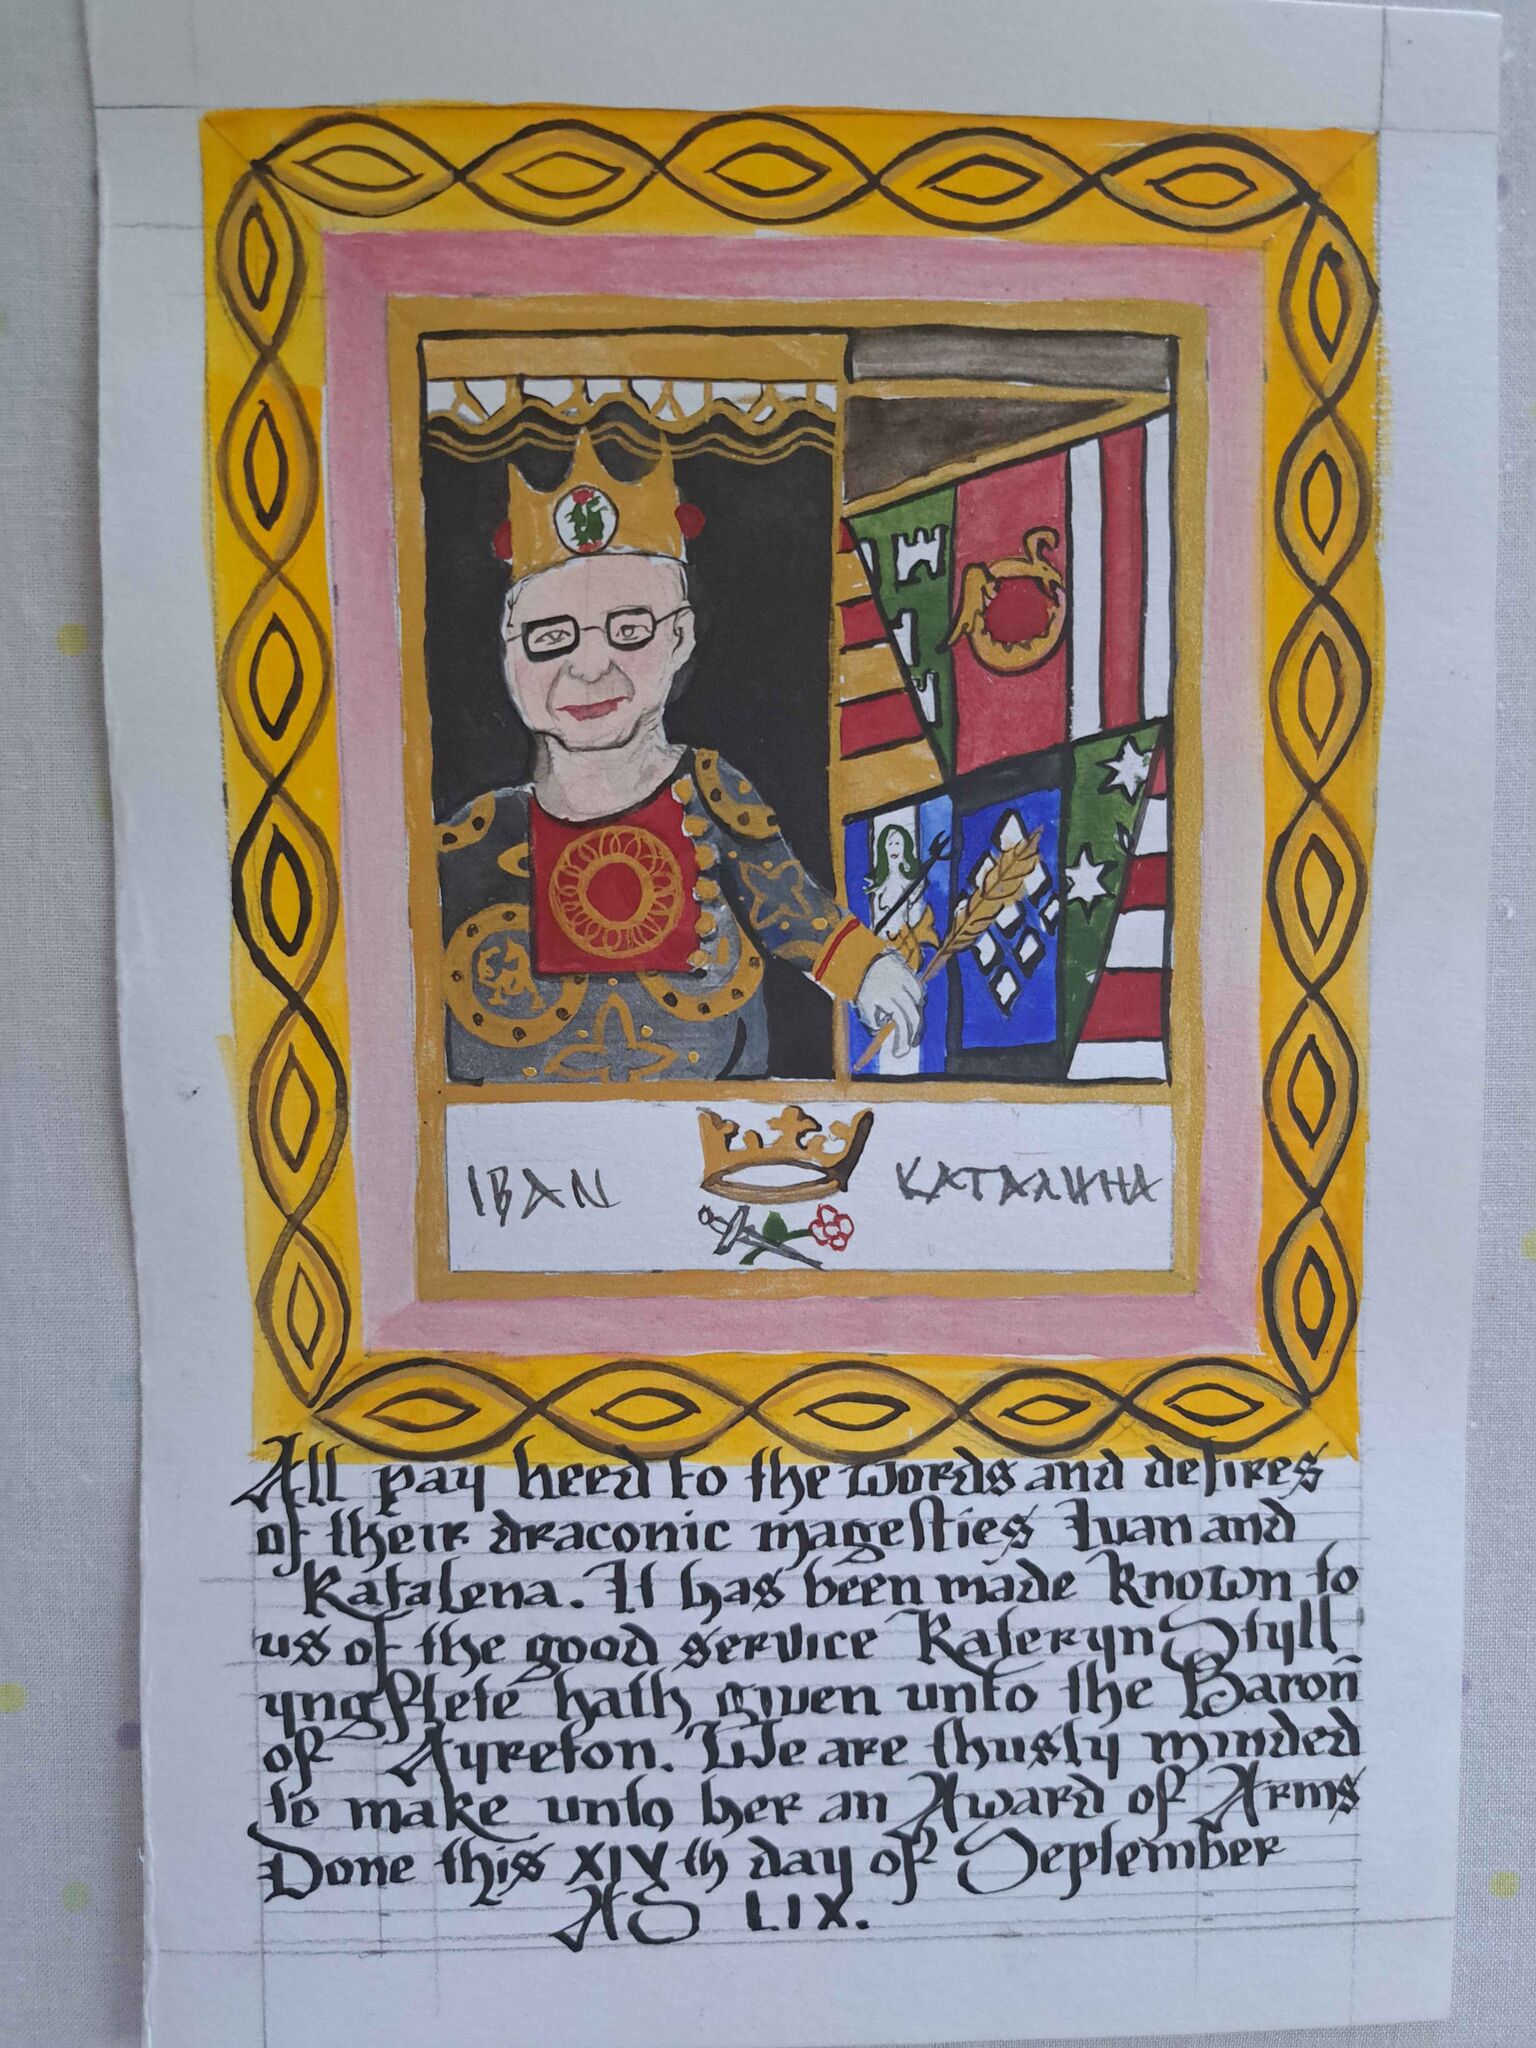 IBAN КАТАЛИНА
All pay heed to the words and desires
of their draconic magesties Ivan and
Katalena. It has been made known to
us of the good service Kateryn Styll
yngflete hath given unto the Baron
of Ayreton. We are thusly minded
to make unto her an Award of Arms
Done this XIVth day of September
AS LIX.